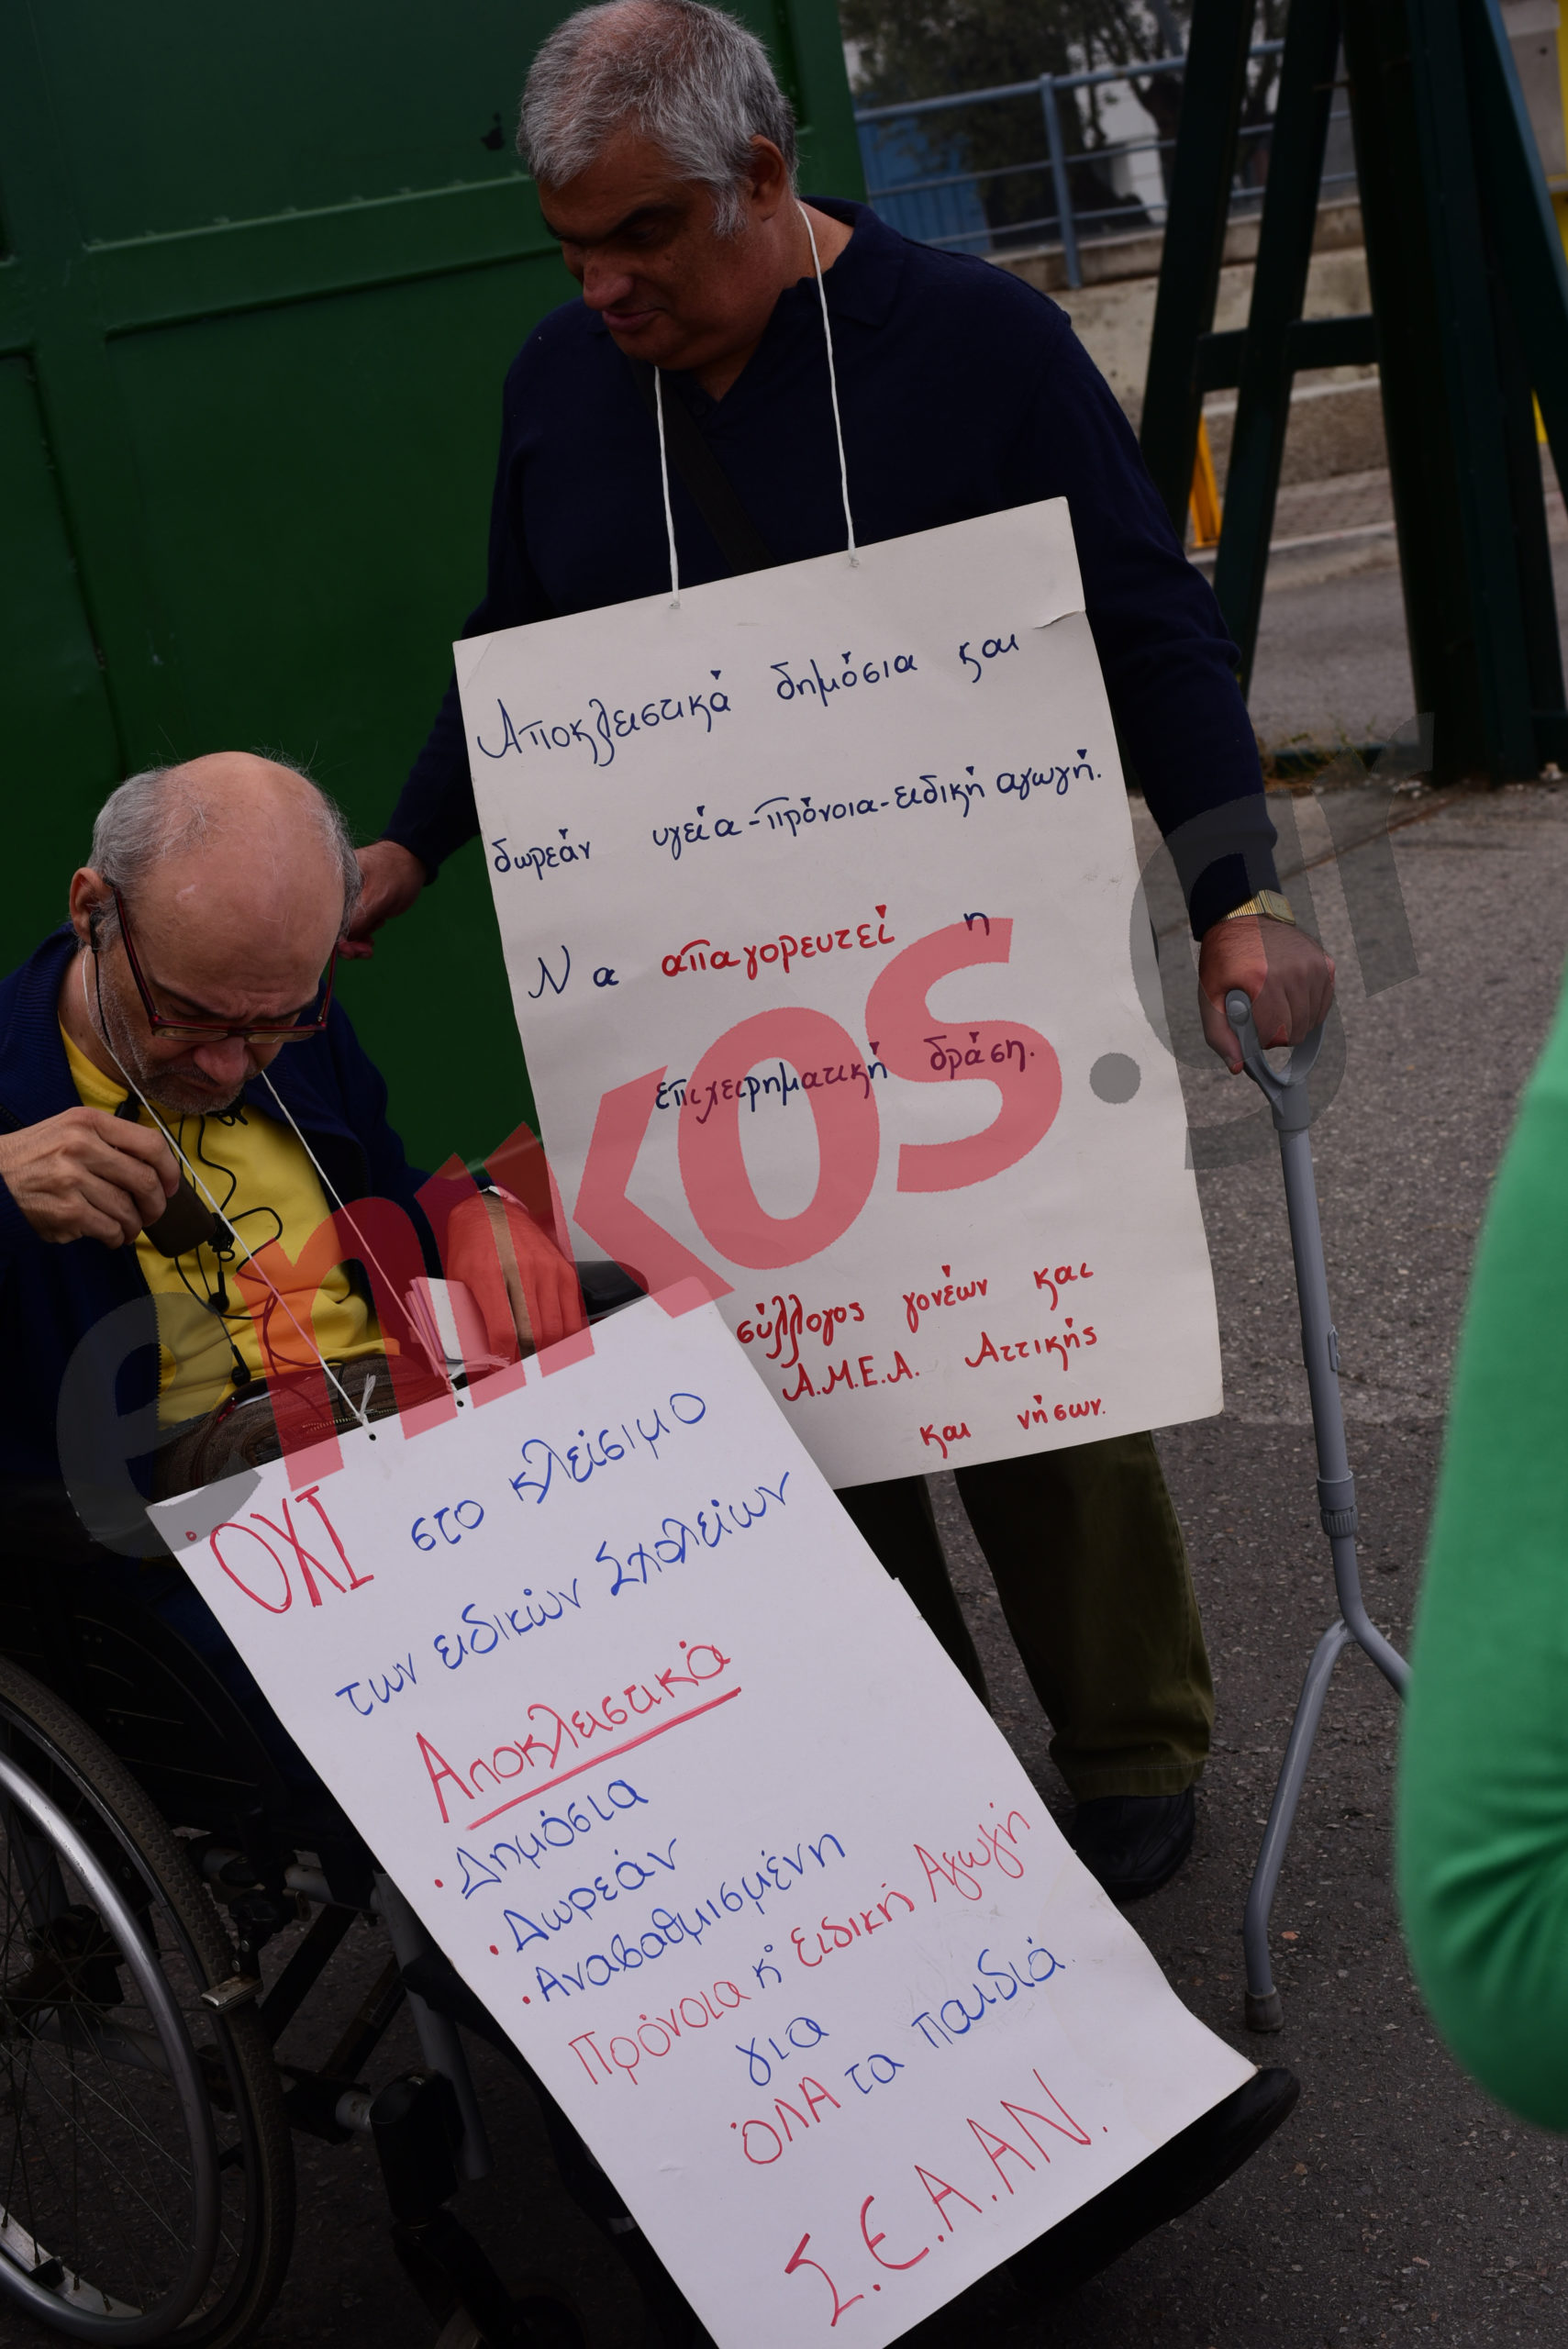 Αποκλειστικά δημόσια και
δωρεάν υγεία-πρόνοια-ειδική αγωγή.
Να απαγορευτεί η
επιχειρηματική δράση.
σύλλογος γονέων και
Α.Μ.Ε.Α. Αττικής
και νήσων.
enikos.gr
·ΟΧΙ στο κλείσιμο
των ειδικών Σχολείων
Αποκλειστικά
· Δημόσια
· Δωρεάν
· Αναβαθμισμένη
Πρόνοια κ' Ειδική Αγωγή
για
ΌΛΑ τα παιδιά.
Σ.Ε.Α.ΑΝ.